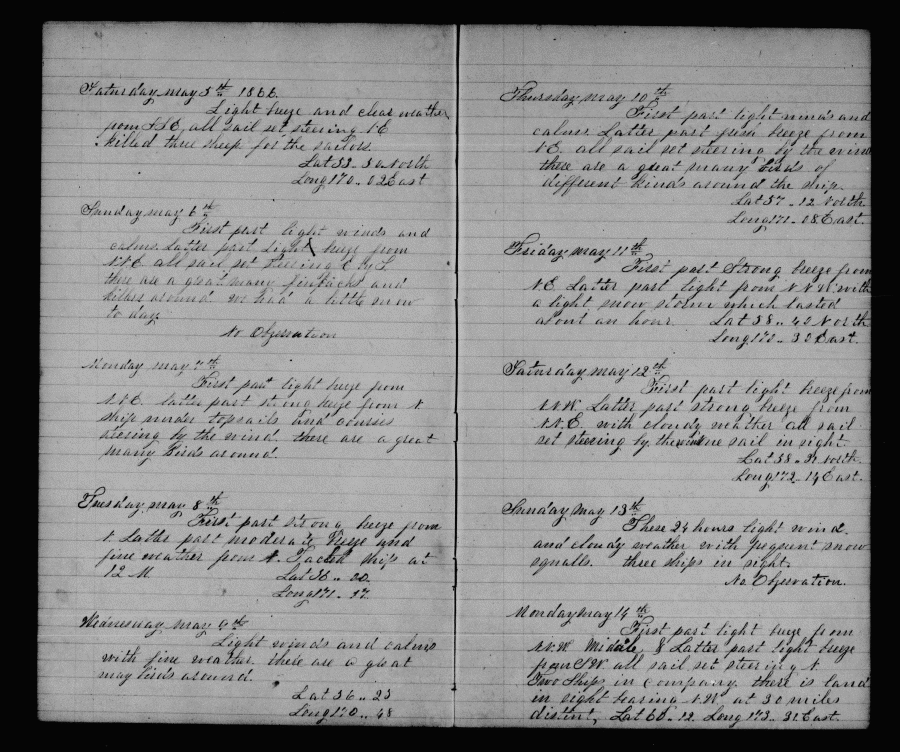 Saturday may 5th 1866.
Light breeze and clear weather
from all sail set steering NE
killed three sheep for the sailors.
Lat 53.. 30 North
Long 170.. 02 East
Sunday may 6th
First part light winds and
calms. Latter part Light breeze from
NNE all sail set steering E by S.
there are a great many finbacks and
killers around we had a little snow
to day.
No Observation
Monday may 7th
First part light breeze from
NNE latter part strong breeze from N
ship under topsails and courses
steering by the wind. there are a great
many birds around.
Tuesday may 8th
First part strong breeze from
N. Latter part moderate breeze and
fine weather from N. Tacked ship at
12 M Lat 56.. 00.
Long 171.. 17.
Wednesday may 9th
Light winds and calms
with fine weather. there are a great
may birds around.
Lat 56.. 23
Long 170.. 48
Thursday may 10th
First part light winds and
calms. Latter part fresh breeze from
NE. all sail set steering by the wind
there are a great many birds of
different kinds around the ship.
Lat 57.. 12 North
Long 171.. 08 East.
Friday may 11th
First part Strong breeze from
NE. Latter part light from NNW. with
a light snow storm which lasted
about an hour. Lat 58.. 40 North
Long 172.. 30 East.
Saturday may 12th
First part light breeze from
NNW. Latter part strong breeze from
NNE. with cloudy weather all sail
set steering by the wind one sail in sight.
Lat 58.. North.
Long 172.. 14 East.
Sunday may 13th
These 24 hours light wind.
and cloudy weather with snow
squalls. three ships in sight.
No Observation.
Monday may 14th
First part light breeze from
NNW Middle & Latter part light breeze
from SW all sail set steering N
Two Ships in company. there is land
in sight bearing NW at 30 miles
distent, Lat 60.. 12. Long 173.. 31 East.